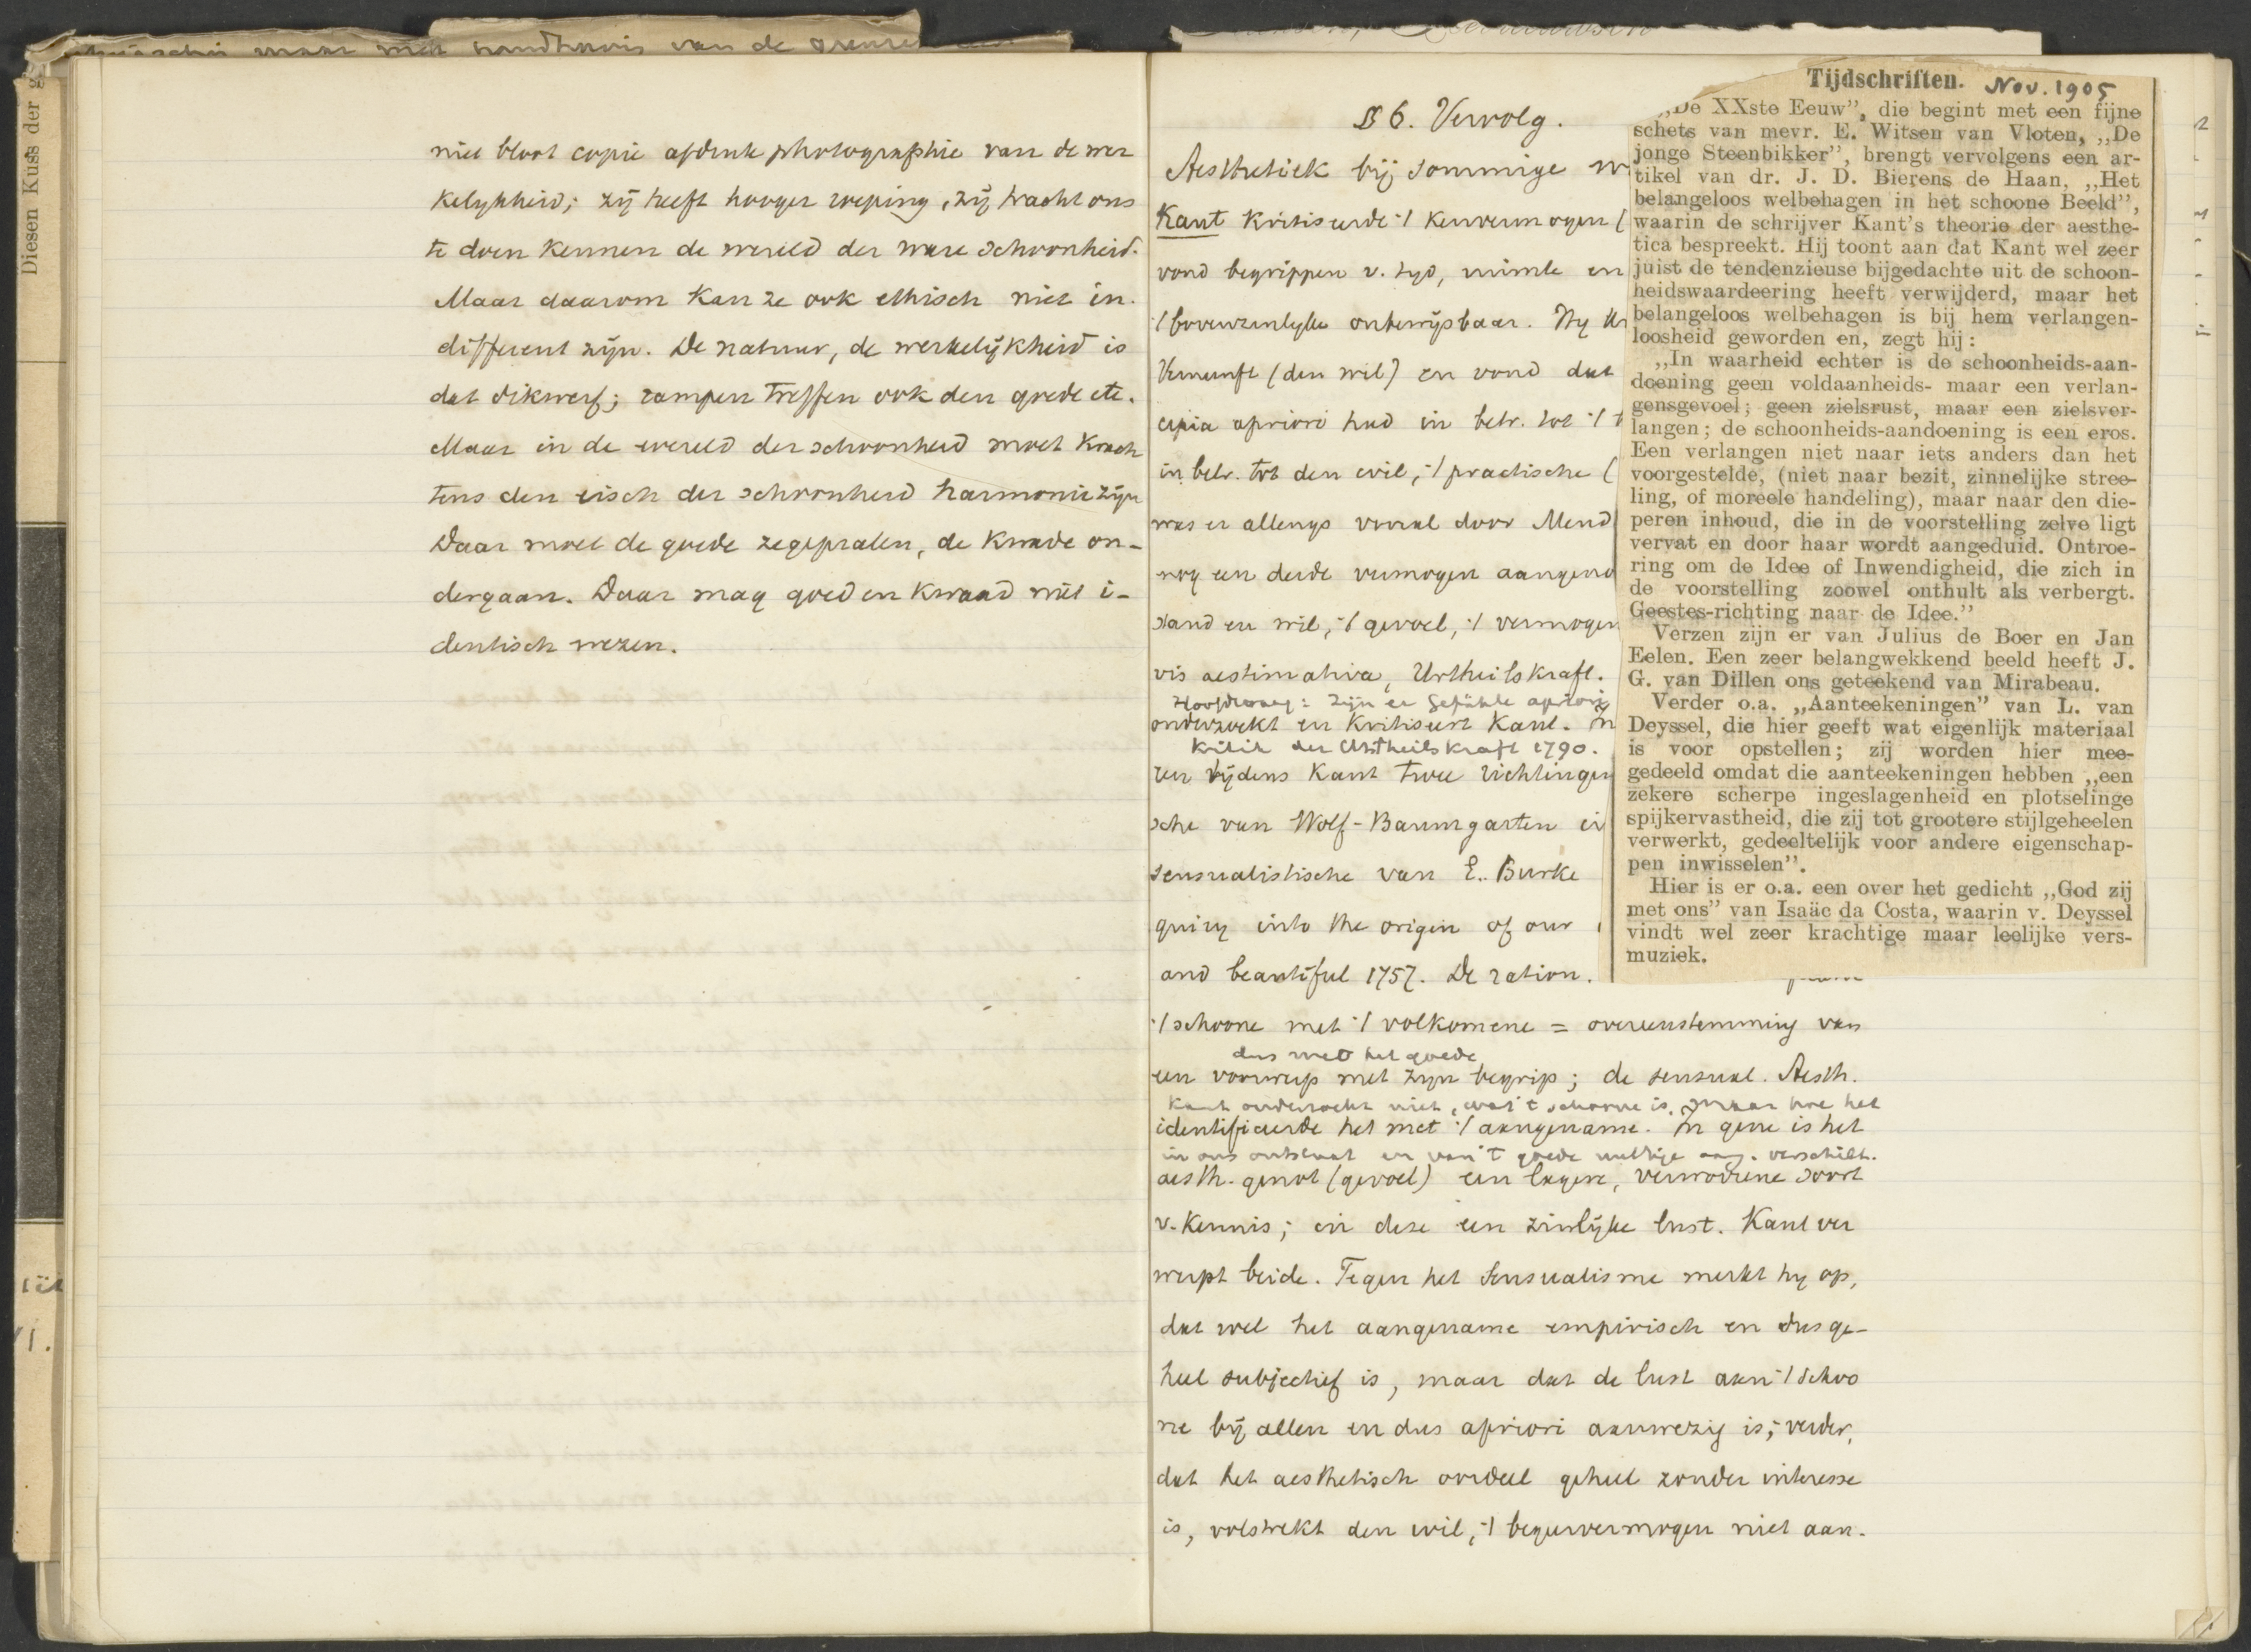 maar met van de
Diesen Kuss der g
niet bloot copie afdruk photographie van de wer
kelykheid; zij heeft hooger roeping, zij tracht ons
te doen kennen de wereld der ware schoonheid.
Maar daarom kan ze ook ethisch niet in-
different zijn. De natuur, de werkelijkheid is
dat dikwerf; rampen treffen ook den goede etc.
Maar in de wereld der schoonheid moet krach
tens den eisch der schoonheid harmonie zijn
Daar moet de goede zegepralen, de kwade on-
dergaan. Daar mag goed en kwaad niet i-
dentisch wezen.
§ 6. Vervolg.
Aesthetiek bij sommige
Kant kritiseerde ·/ kenvermogen (
vond begrippen v. tyd, ruimte en
·/ bovenzinlyke onbewijsbaar. Hy
Vernunft (den wil) en vond dat
cipia apriori had in betr. tot ·/
in betr. tot den wil, ·/ practische (
was er allengs vooral door Mend
nog een derde vermogen aangeno
stand en wil, ·/ gevoel, ·/ vermogen
vis aestimativa, Urtheilskraft.
Hoofdvraag: zijn er Gefühle apriori
onderzoekt en kritiseert Kant. In
Kritik der Urtheilskraft 1790.
ren tijdens Kant twee richtingen
sche van Wolf-Baumgarten
sensualistische van E. Burke
quiry into the origin of our
and beautiful 1757. De ration.
·/ schoone met ·/ volkomene = overeenstemming van
dus met het goede
een voorwerp met zyn begrip; de sensual. Aesth.
Kant onderzocht niet, wat 't schoone is, maar hoe het
identificeerde het met ·/ aangename. In gene is het
in ons ontstaat en van 't goede nuttige aang. verschilt.
aesth. genot (gevoel) een lagere, verwordene soort
v. kennis; in deze een zinlijke lust. Kant ver
werpt beide. Tegen het Sensualisme merkt hy op,
dat wel het aangename empirisch en dus ge-
heel subjectief is, maar dat de lust aan ·/ schoo
ne bij allen en dus apriori aanwezig is; verder,
dat het aesthetisch oordeel geheel zonder interesse
is, volstrekt den wil, ·/ begeervermogen niet aan-
Tijdschriften. Nov. 1905
„De XXste Eeuw”, die begint met een fijne
schets van mevr. E. Witsen van Vloten, „De
jonge Steenbikker”, brengt vervolgens een ar-
tikel van dr. J. D. Bierens de Haan, „Het
belangeloos welbehagen in het schoone Beeld”,
waarin de schrijver Kant's theorie der aesthe-
tica bespreekt. Hij toont aan dat Kant wel zeer
juist de tendenzieuse bijgedachte uit de schoon-
heidswaardeering heeft verwijderd, maar het
belangeloos welbehagen is bij hem verlangen-
loosheid geworden en, zegt hij:
„In waarheid echter is de schoonheids-aan-
doening geen voldaanheids- maar een verlan-
gensgevoel; geen zielsrust, maar een zielsver-
langen; de schoonheids-aandoening is een eros.
Een verlangen niet naar iets anders dan het
voorgestelde, (niet naar bezit, zinnelijke stree-
ling, of moreele handeling), maar naar den die-
peren inhoud, die in de voorstelling zelve ligt
vervat en door haar wordt aangeduid. Ontroe-
ring om de Idee of Inwendigheid, die zich in
de voorstelling zoowel onthult als verbergt.
Geestes-richting naar de Idee.”
Verzen zijn er van Julius de Boer en Jan
Eelen. Een zeer belangwekkend beeld heeft J.
G. van Dillen ons geteekend van Mirabeau.
Verder o.a. „Aanteekeningen” van L. van
Deyssel, die hier geeft wat eigenlijk materiaal
is voor opstellen; zij worden hier mee-
gedeeld omdat die aanteekeningen hebben „een
zekere scherpe ingeslagenheid en plotselinge
spijkervastheid, die zij tot grootere stijlgeheelen
verwerkt, gedeeltelijk voor andere eigenschap-
pen inwisselen”.
Hier is er o.a. een over het gedicht „God zij
met ons” van Isaäc da Costa, waarin v. Deyssel
vindt wel zeer krachtige maar leelijke vers-
muziek.